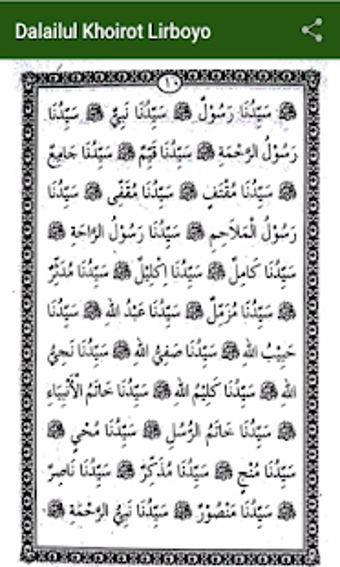 Dalailul Khoirot Lirboyo
١٠
ﷺ سَيِّدُنَا رَسُوْلٌ ﷺ سَيِّدُنَا نَبِيٌّ ﷺ سَيِّدُنَا
رَسُوْلُ الرَّحْمَةِ ﷺ سَيِّدُنَا قَيِّمٌ ﷺ سَيِّدُنَا جَامِعٌ
ﷺ سَيِّدُنَا مُقْتَفٍ ﷺ سَيِّدُنَا مُقَفًّى ﷺ سَيِّدُنَا
رَسُوْلُ الْمَلَاحِمِ ﷺ سَيِّدُنَا رَسُوْلُ الرَّاحَةِ ﷺ
سَيِّدُنَا كَامِلٌ ﷺ سَيِّدُنَا اِكْلِيْلٌ ﷺ سَيِّدُنَا مُدَّثِّرٌ
ﷺ سَيِّدُنَا مُزَمِّلٌ ﷺ سَيِّدُنَا عَبْدُ اللهِ ﷺ سَيِّدُنَا
حَبِيْبُ اللهِ ﷺ سَيِّدُنَا صَفِيُّ اللهِ ﷺ سَيِّدُنَا نَجِيُّ
اللهِ ﷺ سَيِّدُنَا كَلِيْمُ اللهِ ﷺ سَيِّدُنَا خَاتَمُ الْأَنْبِيَاءِ
ﷺ سَيِّدُنَا خَاتَمُ الرُّسُلِ ﷺ سَيِّدُنَا مُحْيٍ ﷺ
سَيِّدُنَا مُنْجٍ ﷺ سَيِّدُنَا مُذَكِّرٌ ﷺ سَيِّدُنَا نَاصِرٌ
ﷺ سَيِّدُنَا مَنْصُوْرٌ ﷺ سَيِّدُنَا نَبِيُّ الرَّحْمَةِ ﷺ